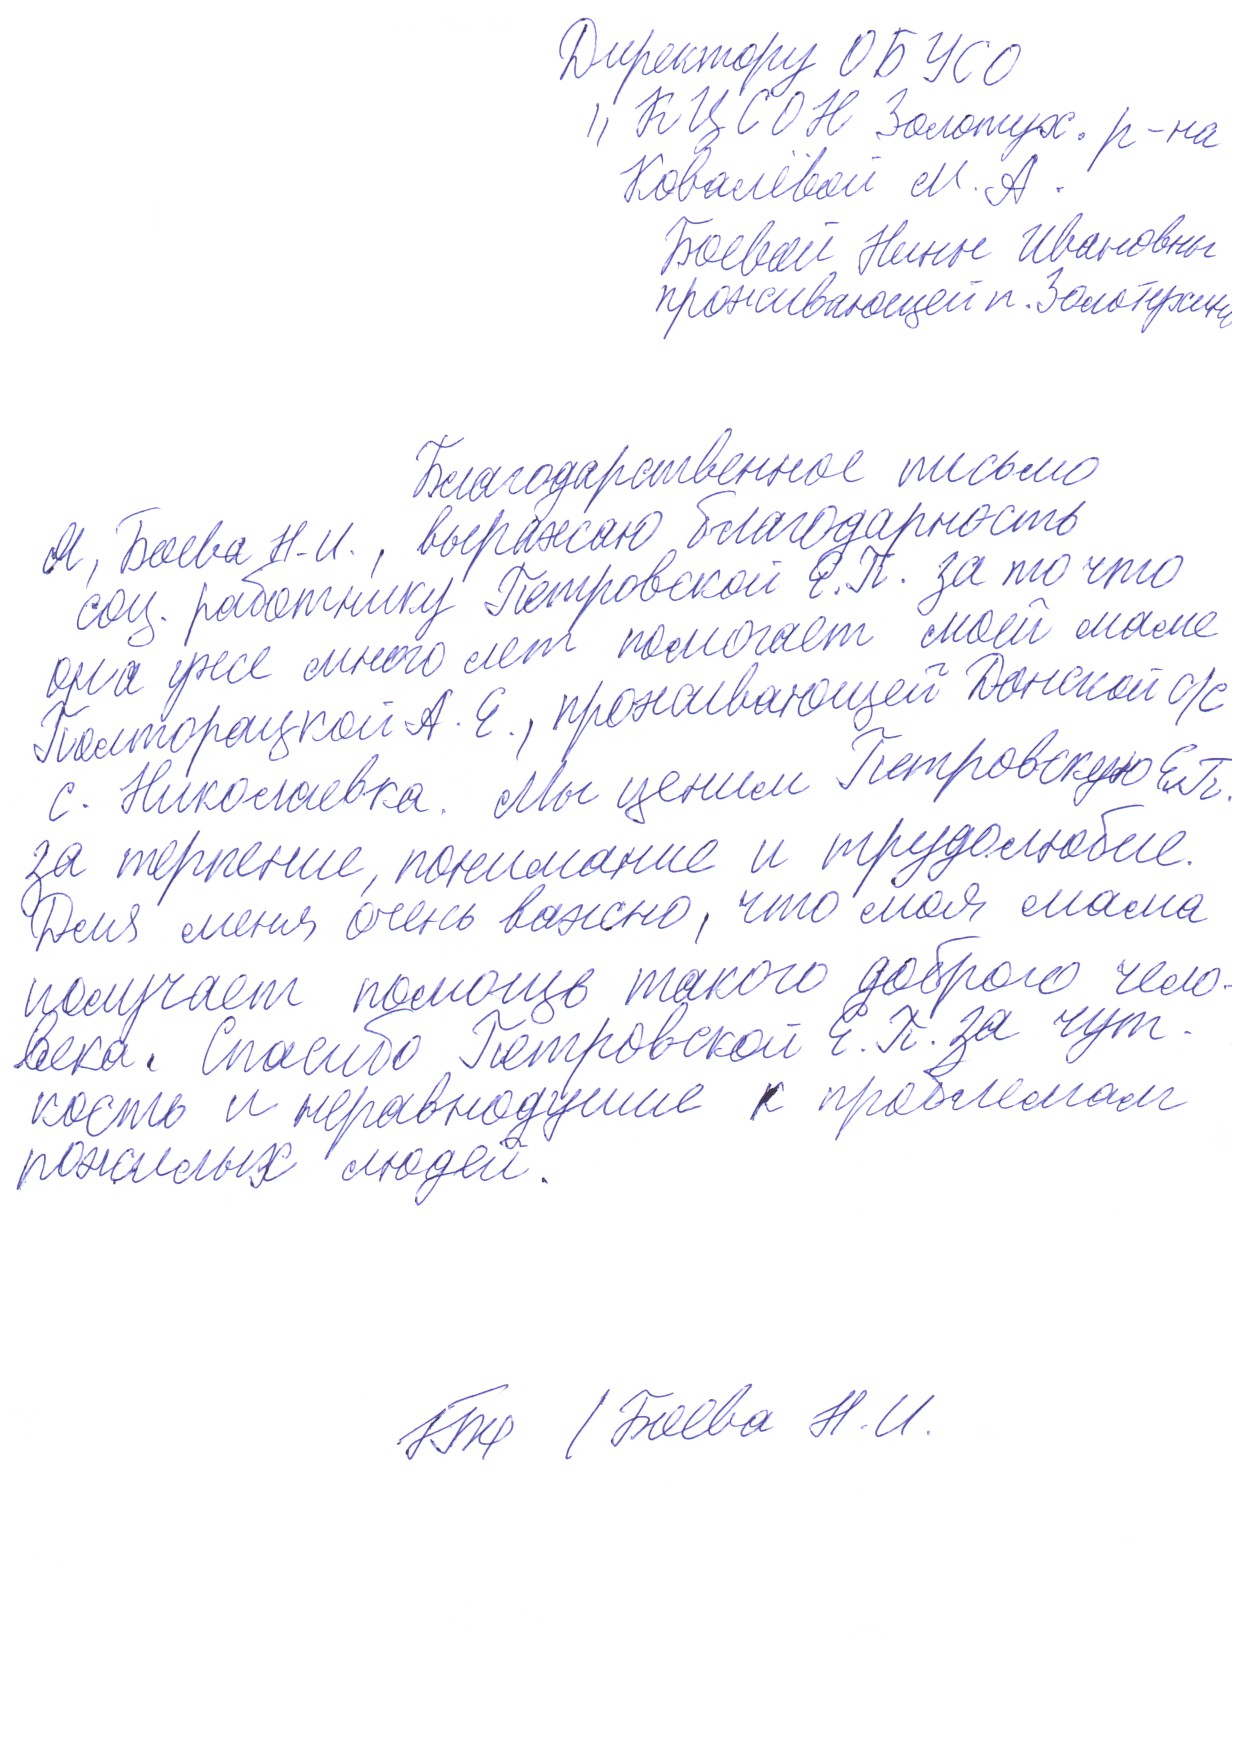 Директору ОБУСО
„КЦСОН Золотух. р-на
Ковалёвой М. А.
Боевой Нины Ивановны
проживающей п. Золотухино
Благодарственное письмо
Я, Боева Н.И., выражаю благодарность
соц. работнику Петровской Е.П. за то что
она уже много лет помогает моей маме
Полторацкой А. Е., проживающей Донской с/с
с. Николаевка. Мы ценим Петровскую Е.П.
за терпение, понимание и трудолюбие.
Для меня очень важно, что моя мама
получает помощь такого доброго чело-
века. Спасибо Петровской Е. П. за чут-
кость и неравнодушие к проблемам
пожилых людей.
/ Боева Н. И.